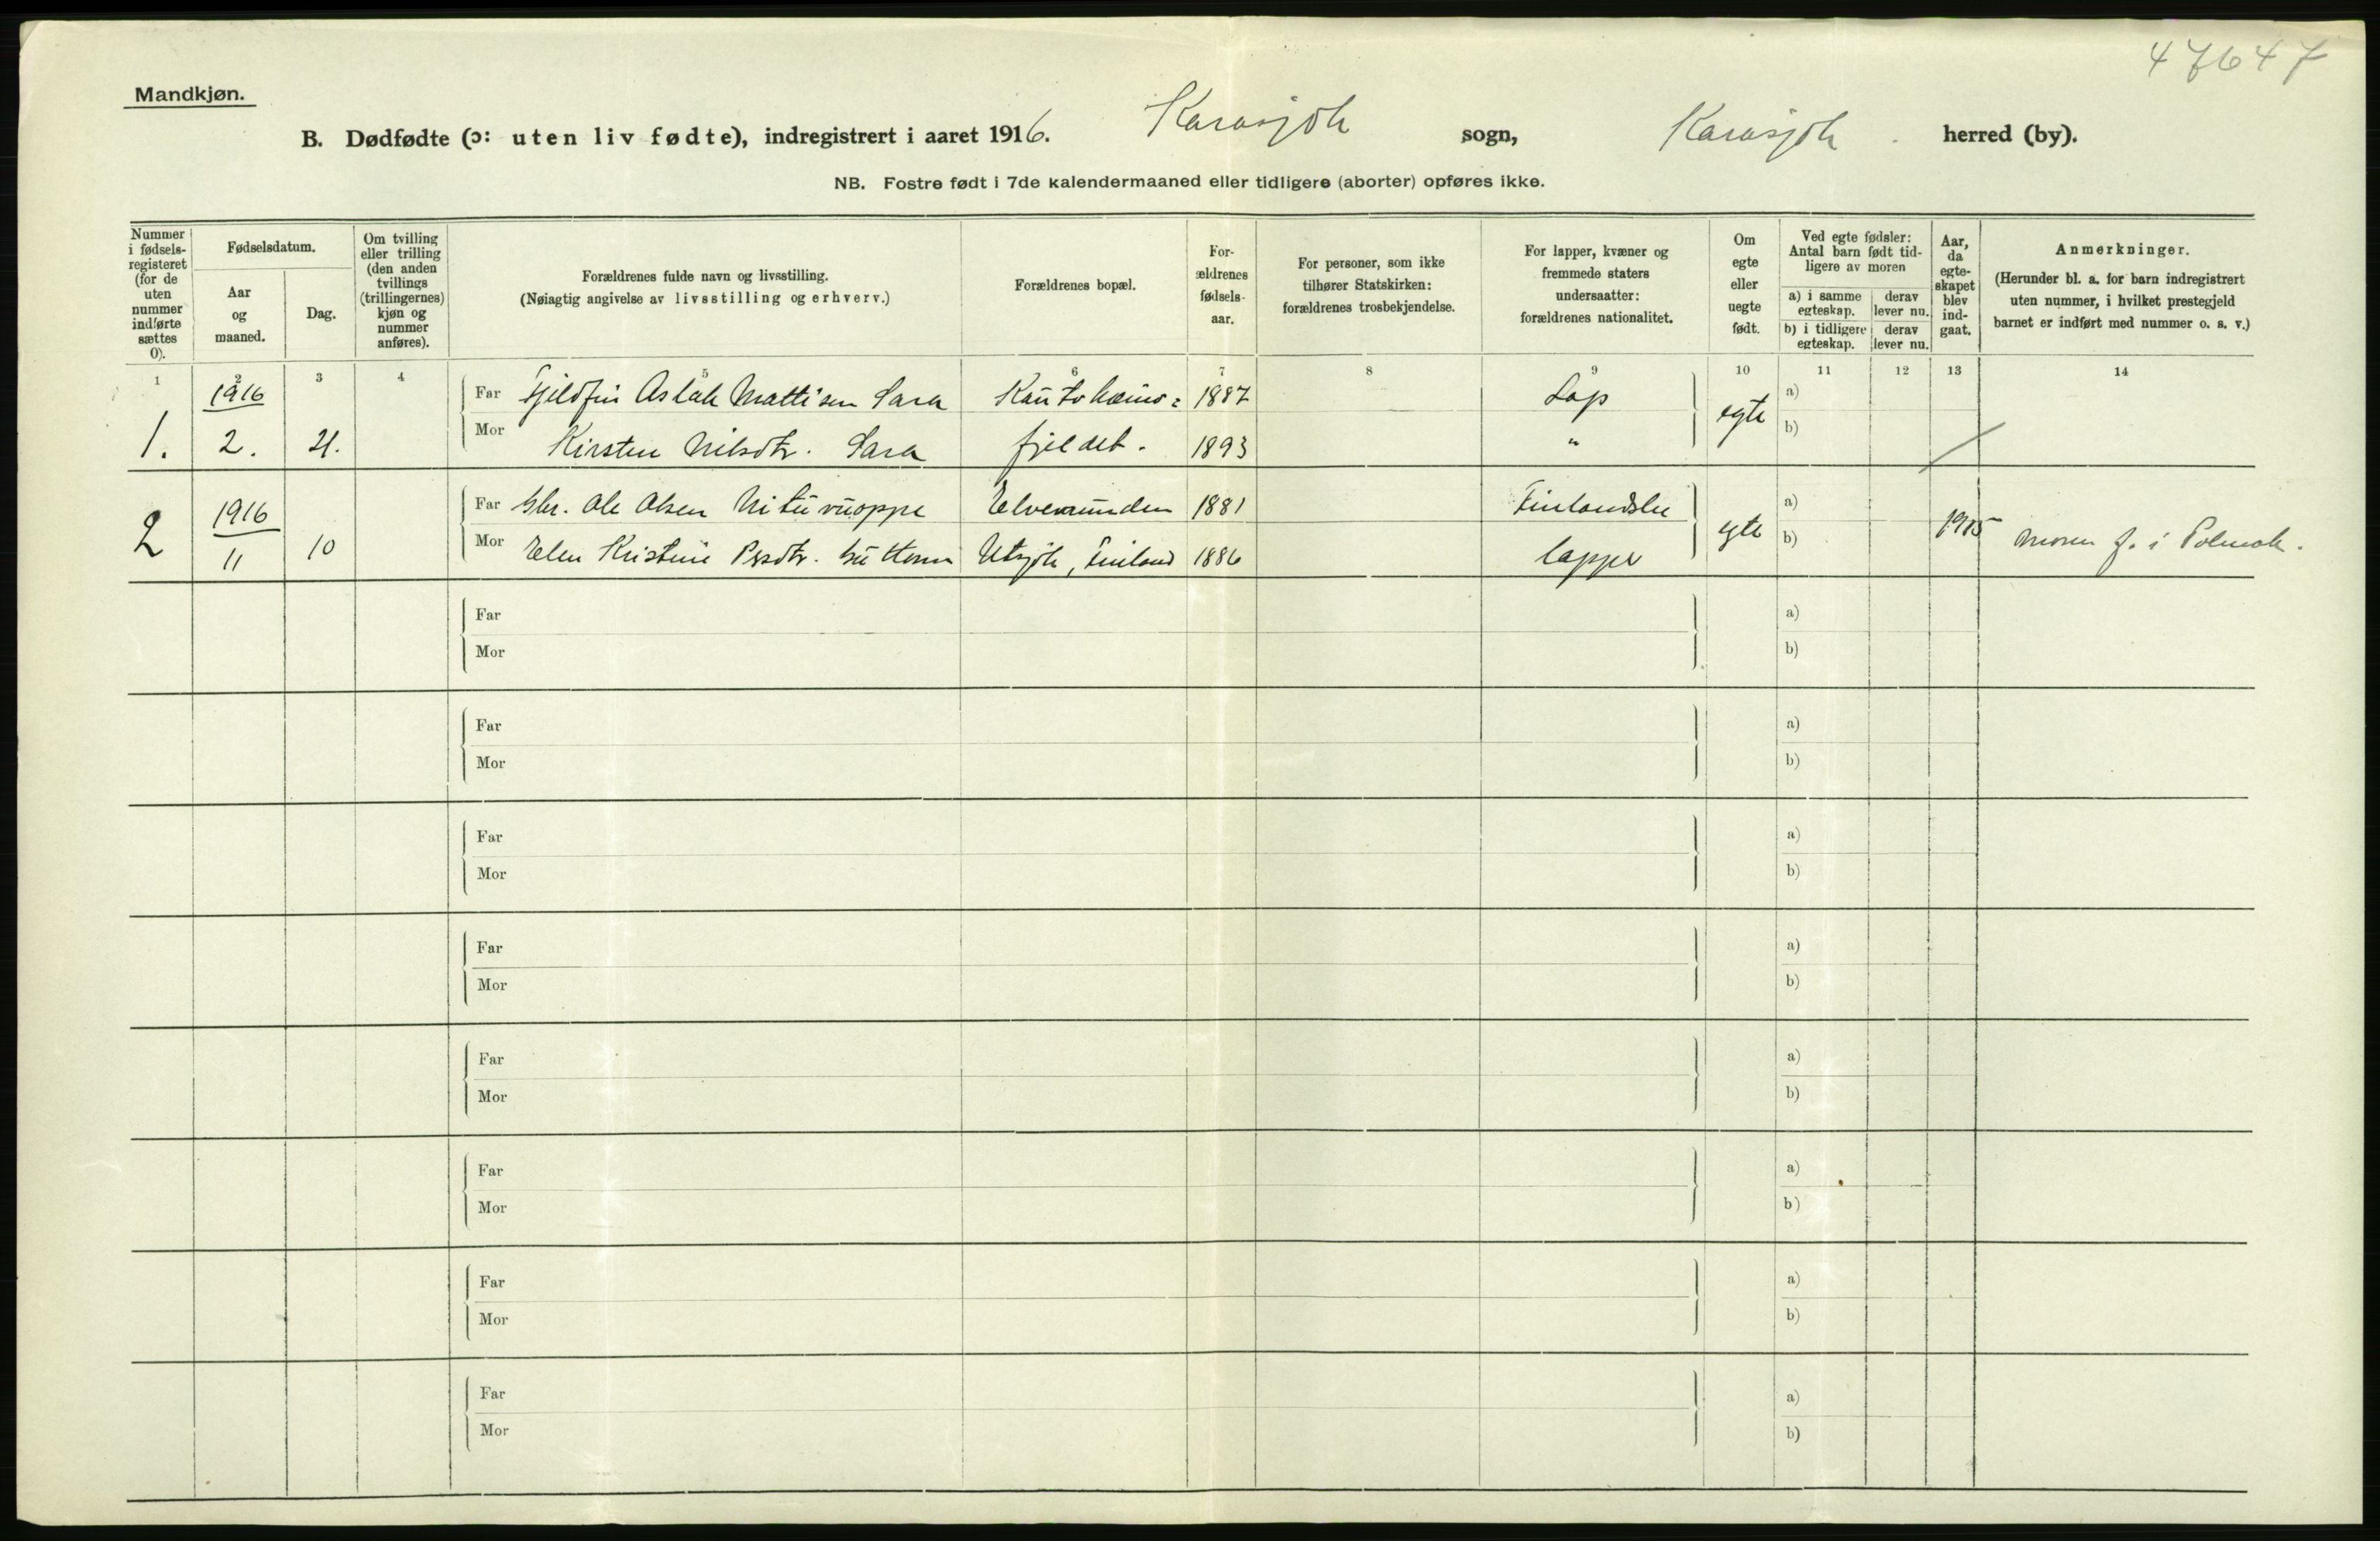 47647
Mandkjøn.
B. Dødfødte (ɔ: uten liv fødte), indregistrert i aaret 1916. Karasjok sogn, Karasjok. herred (by).
NB. Fostre født i 7de kalendermaaned eller tidligere (aborter) opføres ikke.
Nummer
i fødsels-
registeret
(for de
uten
nummer
indførte
sættes
0).
Fødselsdatum.
Aar
og
maaned.
Dag.
Om tvilling
eller trilling
(den anden
tvillings
(trillingernes)
kjøn og
nummer
anføres).
Forældrenes fulde navn og livsstilling.
(Nøiagtig angivelse av livsstilling og erhverv.)
Forældrenes bopæl.
For-
ældrenes
fødsels-
aar.
For personer, som ikke
tilhører Statskirken:
forældrenes trosbekjendelse.
For lapper, kvæner og
fremmede staters
undersaatter:
forældrenes nationalitet.
Om
egte
eller
uegte
født.
Ved egte fødsler:
Antal barn født tid-
ligere av moren
a) i samme
egteskap.
derav
lever nu.
b) i tidligere
egteskap.
derav
lever nu.
Aar,
da
egte-
skapet
blev
ind-
gaat.
Anmerkninger.
(Herunder bl. a. for barn indregistrert
uten nummer, i hvilket prestegjeld
barnet er indført med nummer o. s. v.)
1 2 3 4 5 6 7 8 9 10 11 12 13 14
1916 Far Fjeldfin Aslak Mattisen Sara Kautokeino= 1887 Lap egte a)
1. 2. 21. Mor Kirsten Nilsdtr. Sara fjeldet. 1893 " b)
1916 Far Gbr. Ole Olsen Elvemunden 1881 Finlandske egte a)
2 11 10 Mor Elen Kristine Persdtr. Utsjok, Finland 1886 lapper b) 1915 Moren f. i Polmak.
Far a)
Mor b)
Far a)
Mor b)
Far a)
Mor b)
Far a)
Mor b)
Far a)
Mor b)
Far a)
Mor b)
Far a)
Mor b)
Far a)
Mor b)